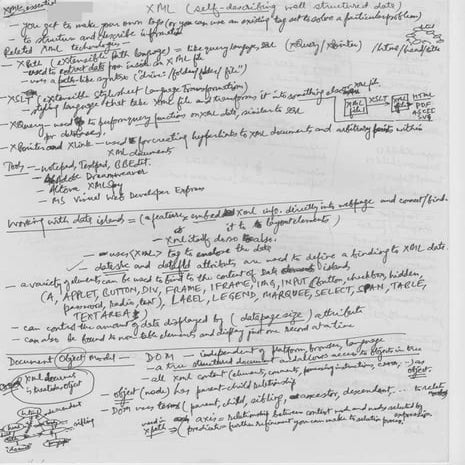 XML essential
XML (self-describing well structured data)
- you get to make your own tags (or you can use an existing tag set to solve a particular problem)
to structure and describe information
Related XML technologies -
- XPath (extensible path language) = like query language, SQL (XQuery/XPointer) /html/head/title
- used to extract data from inside an XML file
- uses a path-like syntax ("drive:/folder/folder/file")
- XSLT (extensible Stylesheet Language Transformation)
- style language that take XML file and transforms it into something else
XML file XSLT HTML PDF ASCII SVG
- XQuery - used to perform query functions on XML data, similar to SQL
for databases.
- XPointer and XLink - used for creating hyperlinks to XML document and arbitrary points within
XML documents
Tools - Notepad, Textpad, BBEdit.
- Adobe Dreamweaver
- Altova XMLSpy
- MS Visual Web Developer Express
Working with data islands = (a feature; embed XML info. directly into webpage and connect/bind
it to layout elements)
- XML itself also.
- uses <XML> tag to enclose the data
- datasrc and datafld attributes are used to define a binding to XML data.
- a variety of elements can be used to bind to the content of data island,
(A, APPLET, BUTTON, DIV, FRAME, IFRAME, IMG, INPUT (button, checkbox, hidden,
password, radio, text), LABEL, LEGEND, MARQUEE, SELECT, SPAN, TABLE,
TEXTAREA)
- can control the amount of data displayed by (datapagesize) attribute
- can also be bound to non-table elements and display just one record at a time
Document Object Model - DOM - independent of platform, browser, language
- a tree structured document and allows access to objects in tree
- all XML content (elements, comments, processing instructions, ...) as object.
XML document is treated as object
- object (node) has parent child relationship
- DOM uses terms (parent, child, sibling, ancestor, descendant... to
html
head
sibling
used in XPath
axis = relationship between context node and nodes selected by expression
predicate = further refinement you can make to selection process